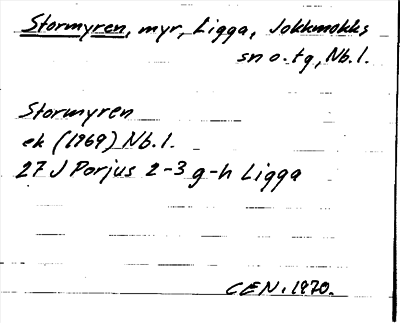 Stormyren, myr, Ligga, Jokkmokks
sn o. tg, Nb. l.
Stormyren
ek (1969) Nb. l.
27 J Porjus 2-3 g-h Ligga
CEN. 1970.